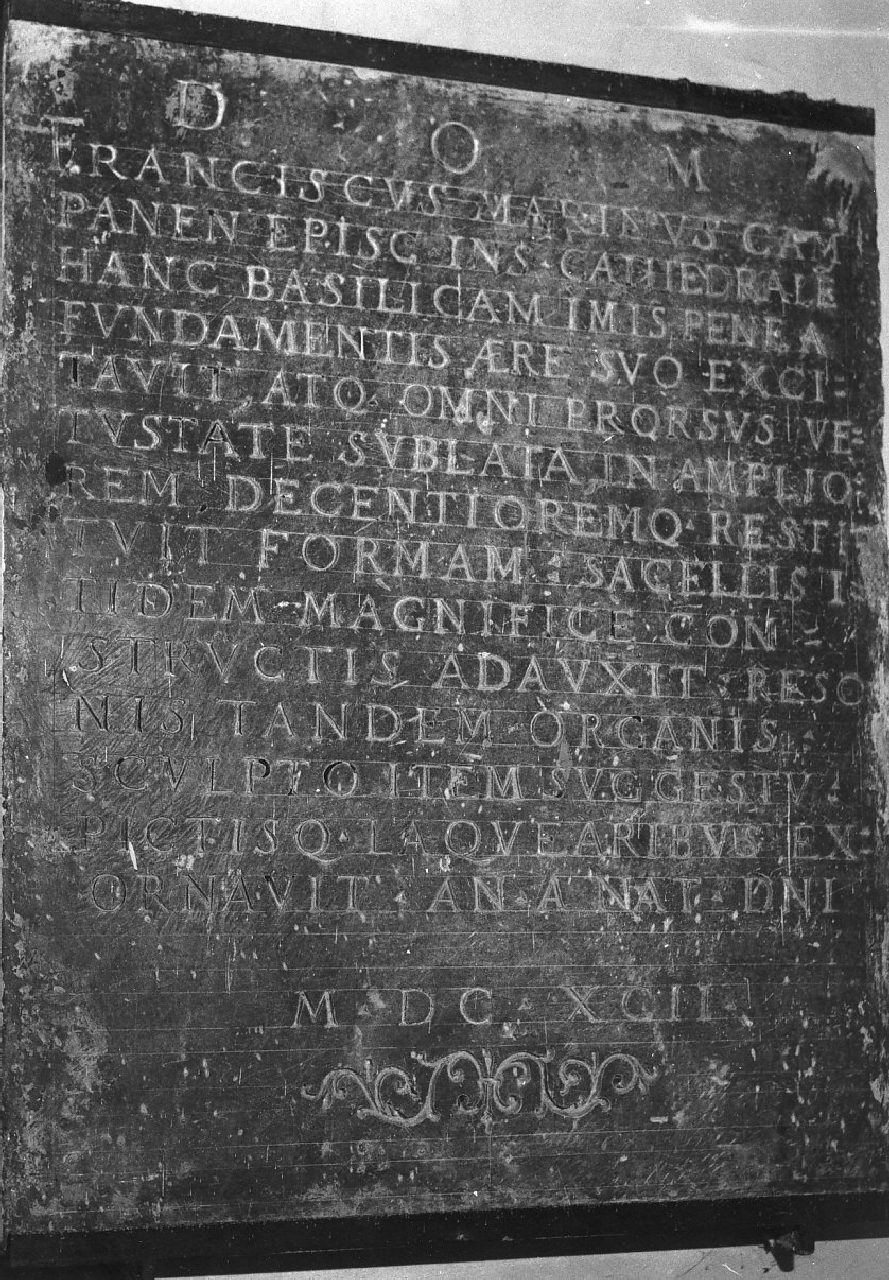 D O M
FRANCISCVS MARINVS CAM
PANEN EPISC INS CATHEDRALĒ
HANC BASILICAM IMIS PENE A
FVNDAMENTIS ÆRE SVO EXCI=
TAVIT, ATQ· OMNI PRORSVS VE=
TVSTATE SVBLATA, IN AMPLIO=
REM DECENTIOREMQ· RESTI
TVIT FORMAM : SACELLIS I
TIDEM MAGNIFICE CON
STRVCTIS ADAVXIT : RESO
NIS TANDEM ORGANIS
SCVLPTO ITEM SVGGESTV
PICTISQ· LAQVEARIBVS EX=
ORNAVIT · AN · A NAT · DNI
M · DC · XCII